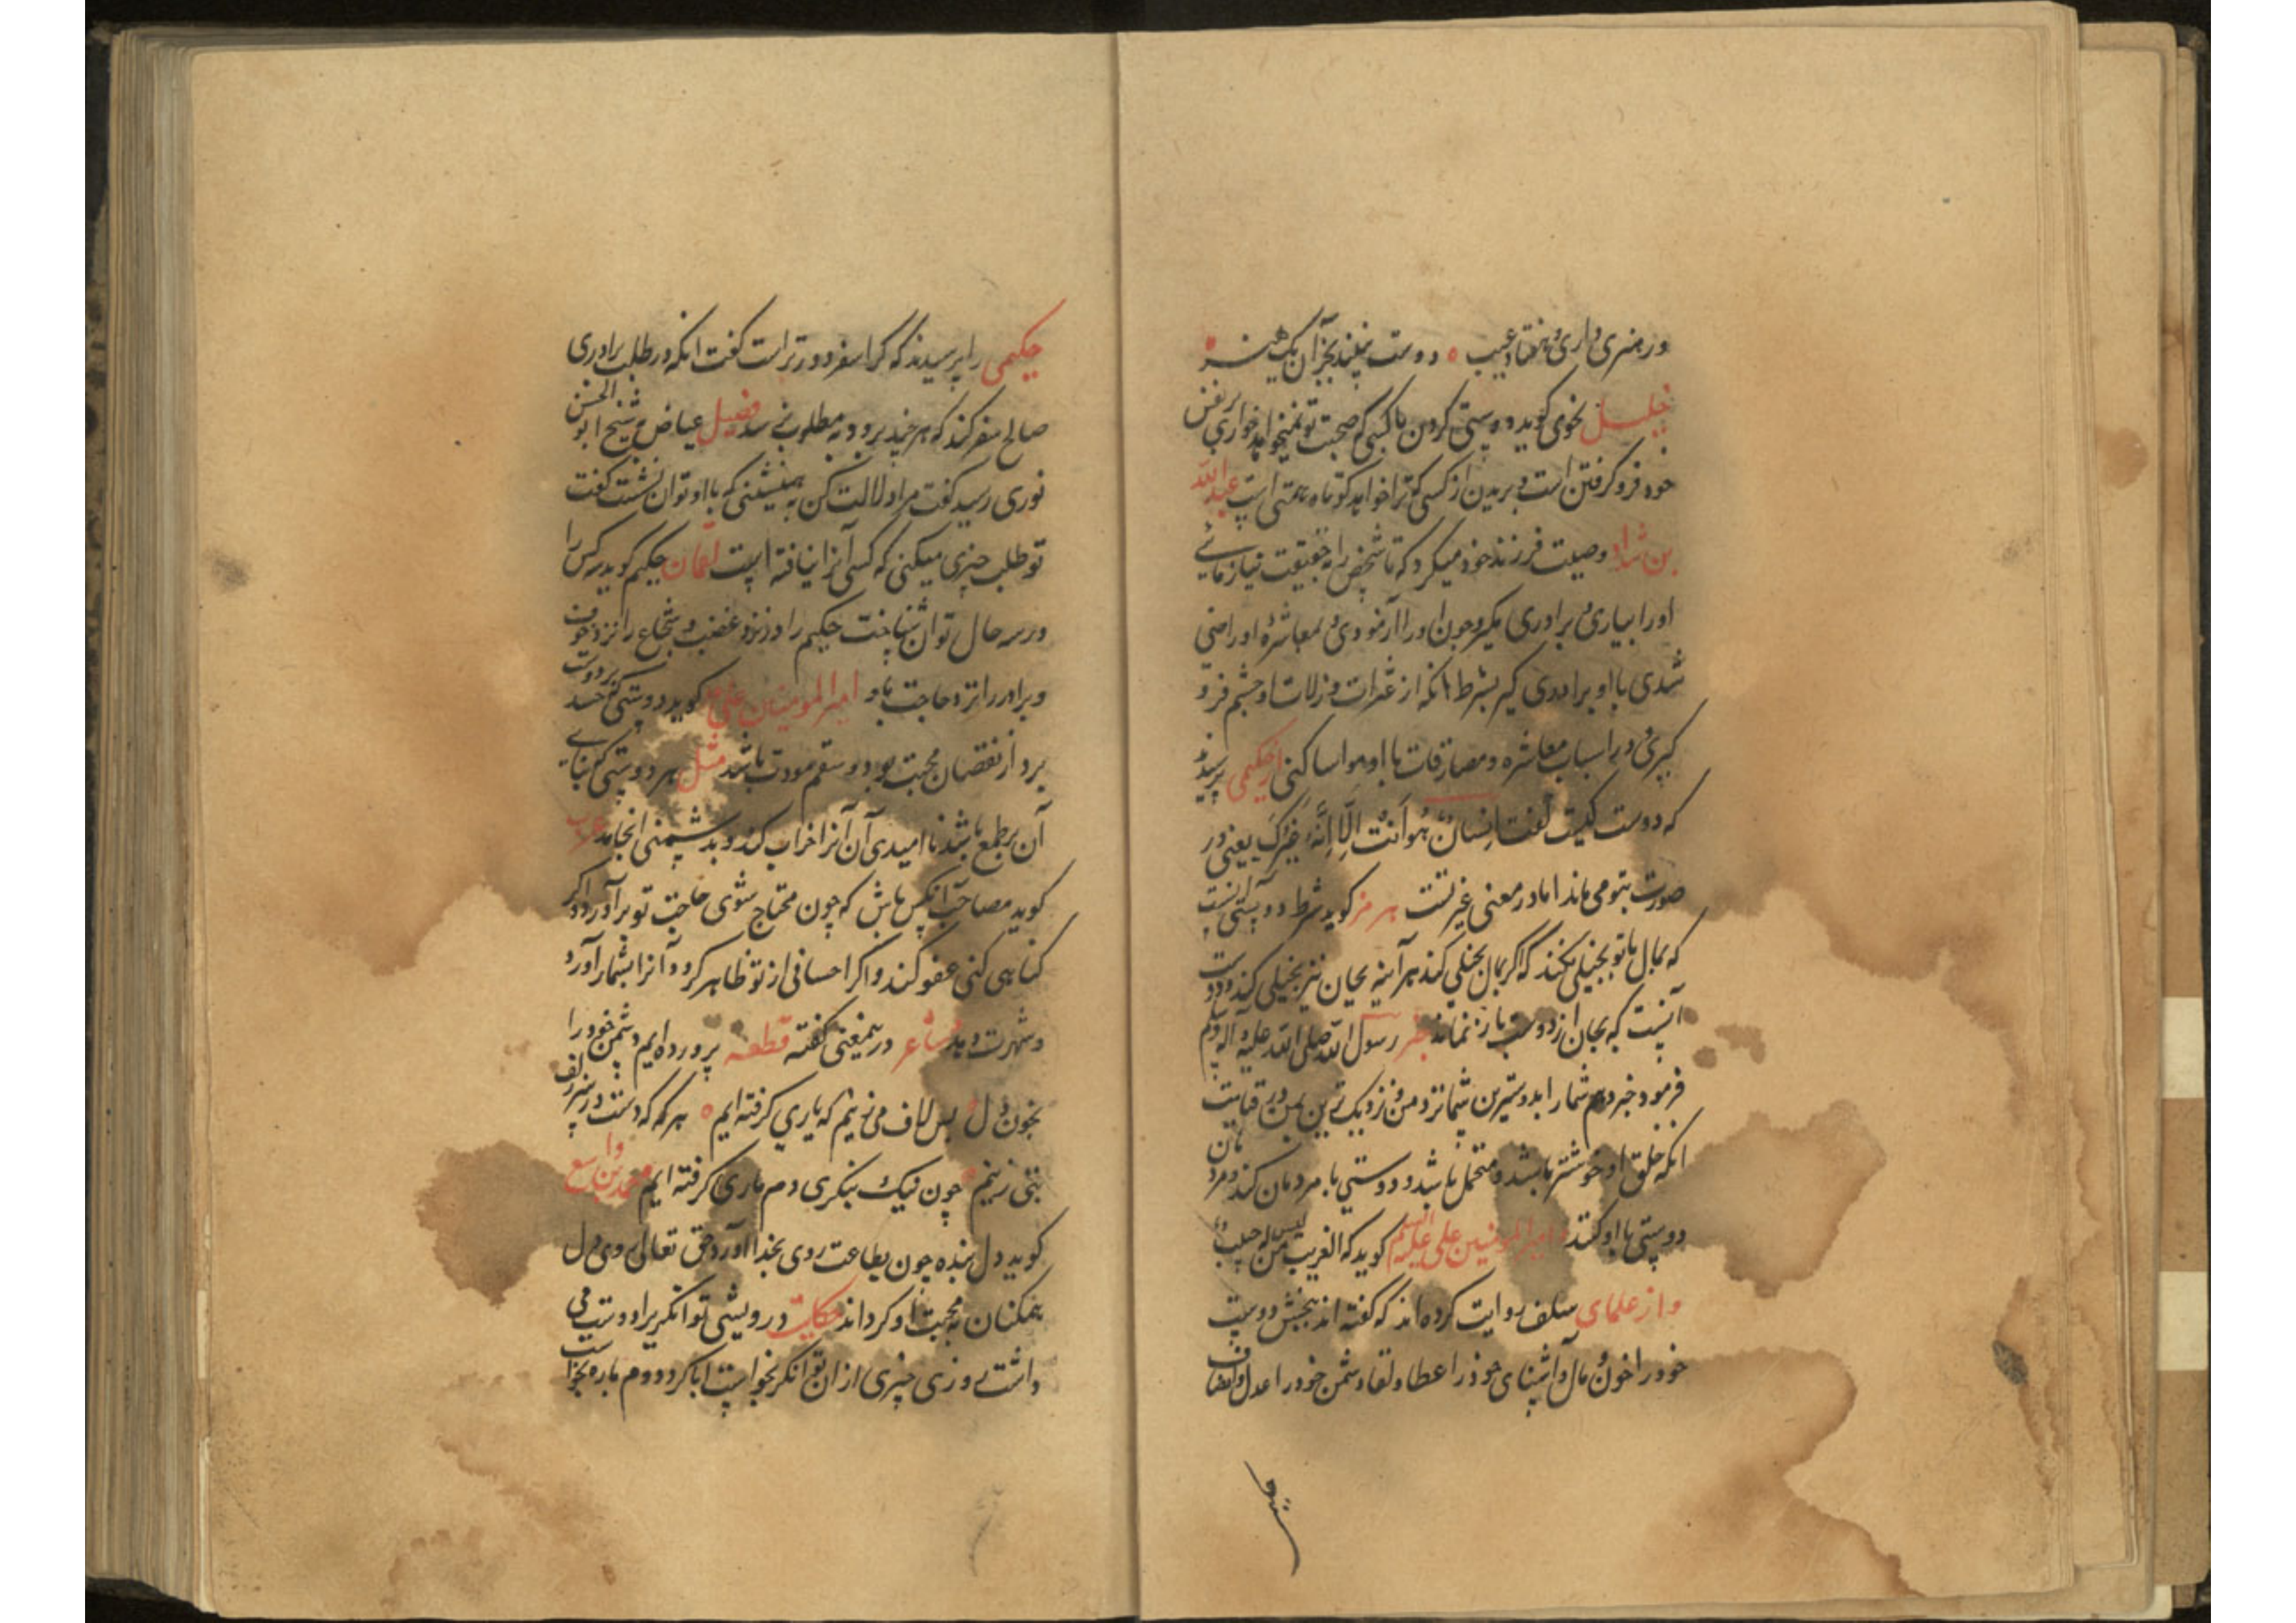 ور هنری داری و هفتاد عیب ه دوست نبیند بجز آن یک هنر
خلیل نحوی کوید دوستی کردن با کسی که صحبت تو نمیخواهد خواری بر نفس
خود فرو کرفتن است و بریدن از کسی که ترا خواهد کوتاه همتی است عبدالله
بن شداد وصیت فرزند خود میکرد که تا شخص را بحقیقت نیازمائے
اورا بیاری و برادری مکیر و چون اورا آزمودی و بمعاشرهٔ او راضی
شدی با او برادری کیر بشرط انکه از عثرات و زلات او چشم فرو
کیری و در اسباب معاشره و مصادقات با او مواسا کنی از حکیمی پرسیدند
که دوست کیست کفت انسان هو انت الا انه غیرک یعنی در
صورت بتو می ماند اما در معنی غیر تست هرمز کوید شرط دوستی انست
که بمال با تو بخیلی نکند که اکر بمال بخیلی کند هر آینه بجان نیز بخیلی کند و دوست
آنست که بجان از دوست باز نماند خبر رسول الله صلی الله علیه و آله وسلم
فرمود خبر دهم شمارا بدوسترین شما نزد من و نزدیک ترین بمن در قیامت
انکه خلق او خوشتر باشد و متحمل باشد و دوستی با مردمان کند و مردمان
دوستی با او کنند و امیرالمومنین علی علیه السلم کوید که الغریب من لیس له حبیب
و از علمای سلف روایت کرده اند که کفته اند ببخش دوست
خودرا خون و مال و آشنای خودرا عطا و لقا و دشمن خودرا عدل و انصاف
حکیمی
حکیمی را پرسیدند که کرا سفر دورتر است کفت انکه در طلب برادری
صالح سفر کند که هر چند برود به مطلوب نرسد فضیل عیاض بشیخ ابو الحسن
نوری رسید کفت مرا دلالت کن به همنشینی که با او توان نشست کفت
تو طلب چیزی میکنی که کسی آنرا نیافته است لقمان حکیم کوید سه کس را
در سه حال توان شناخت حکیم را در نزد غضب و شجاع را نزد خوف
و برادر را نزد حاجت باو امیرالمومنین علی کوید دوستی که حسد بر دوست
برد از نقصان محبت بود و سقم مودت باشد مثل هر دوستی که بنای
آن بر طمع باشد نا امیدی آن آنرا خراب کند و بدشمنی انجامد
کوید مصاحب آنکس باش که چون محتاج شوی حاجت تو برآورد و اکر
کناهی کنی عفو کند و اکر احسانی از تو ظاهر کردد آنرا بشمار آورد
و شهرت دهد شاعر در ینمعنی کفته قطعه پرورده ایم دشمن خود را
بخون دل ه پس لاف می زنیم که یاری کرفته ایم ه هر کمه که دست در سر زلف
بتی زنیم ه چون نیک بنکری دم ماری کرفته ایم محمد بن واسع
کوید دل بنده چون بطاعت روی بخدا آورد حق تعالی روی دل
همکنان به محبت او کرداند حکایت درویشی توانکریرا دوست می
داشت روزی چیزی از ان توانکر بخواست ابا کرد دوم باره بخواست